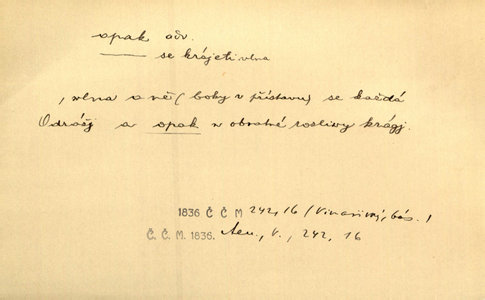 opak adv.
—— se krájeti vlna
, vlna o ně (boky v přístavu) se každá
Odrážj a opak w obratné rosliwy krágj.
1836 Č Č M 242, 16 (Vinařický, bás.)
Č. Č. M. 1836. Aen., V., 242, 16